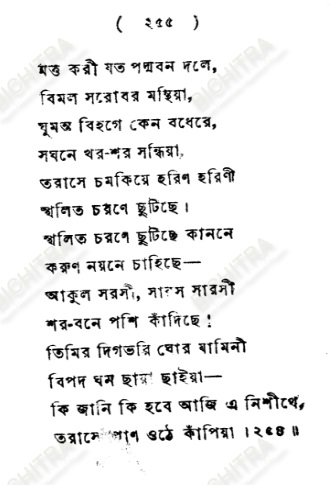 ( ২৫৫ )
মত্ত করী যত পদ্মবন দলে,
বিমল সরোবর মন্থিয়া,
ঘুমন্ত বিহগে কেন বধেরে,
সঘনে থর-শর সন্ধিয়া,
তরাসে চমকিয়ে হরিণ হরিণী
স্খলিত চরণে ছুটিছে।
স্খলিত চরণে ছুটিছে কাননে
করুণ নয়নে চাহিছে—
আকুল সরসী, সারস সারসী
শর-বনে পশি কাঁদিছে!
তিমির দিগভরি ঘোর যামিনী
বিপদ ঘন ছায়া ছাইয়া—
কি জানি কি হবে আজি এ নিশীথে,
তরাসে প্রাণ ওঠে কাঁপিয়া।২৫৪॥